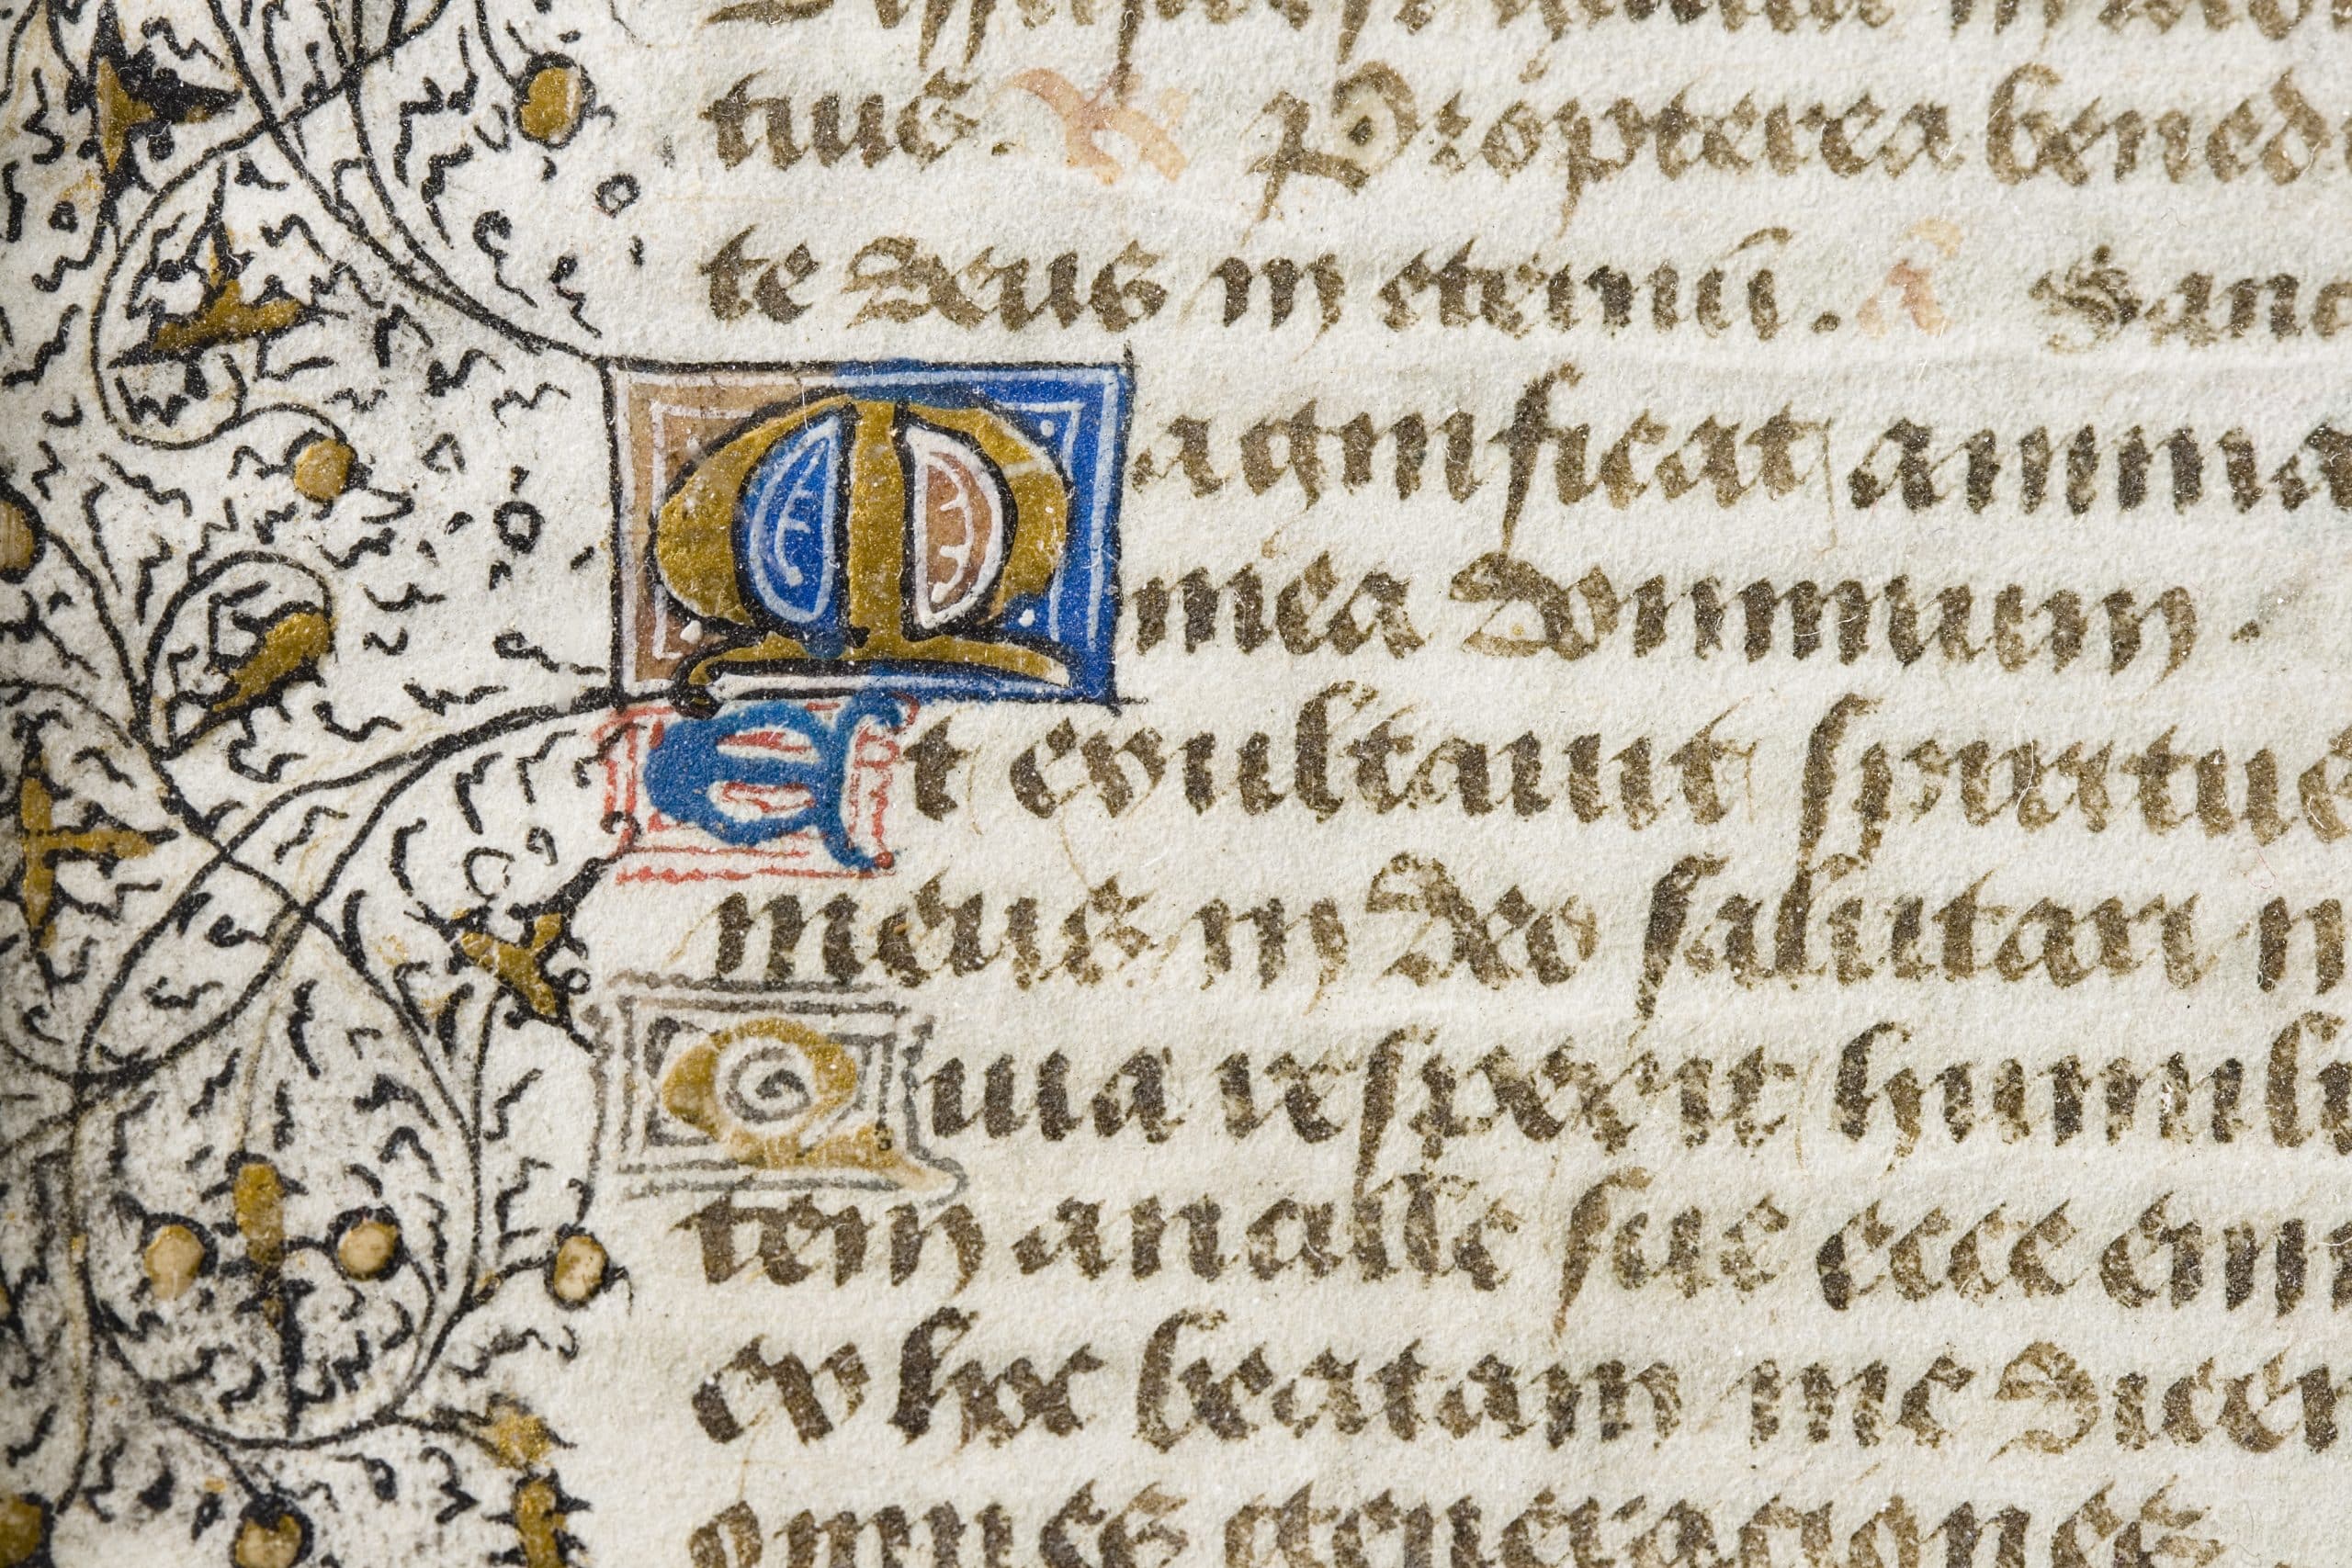 tuis. Propterea bened
te deus in eternū. a Sanc
Magnificat anima
mea dominum.
Et exultauit spiritus
meus in deo salutari m
Quia respexit humili
tem ancille sue ecce eni
ex hoc beatam me dicen
omnes generaciones